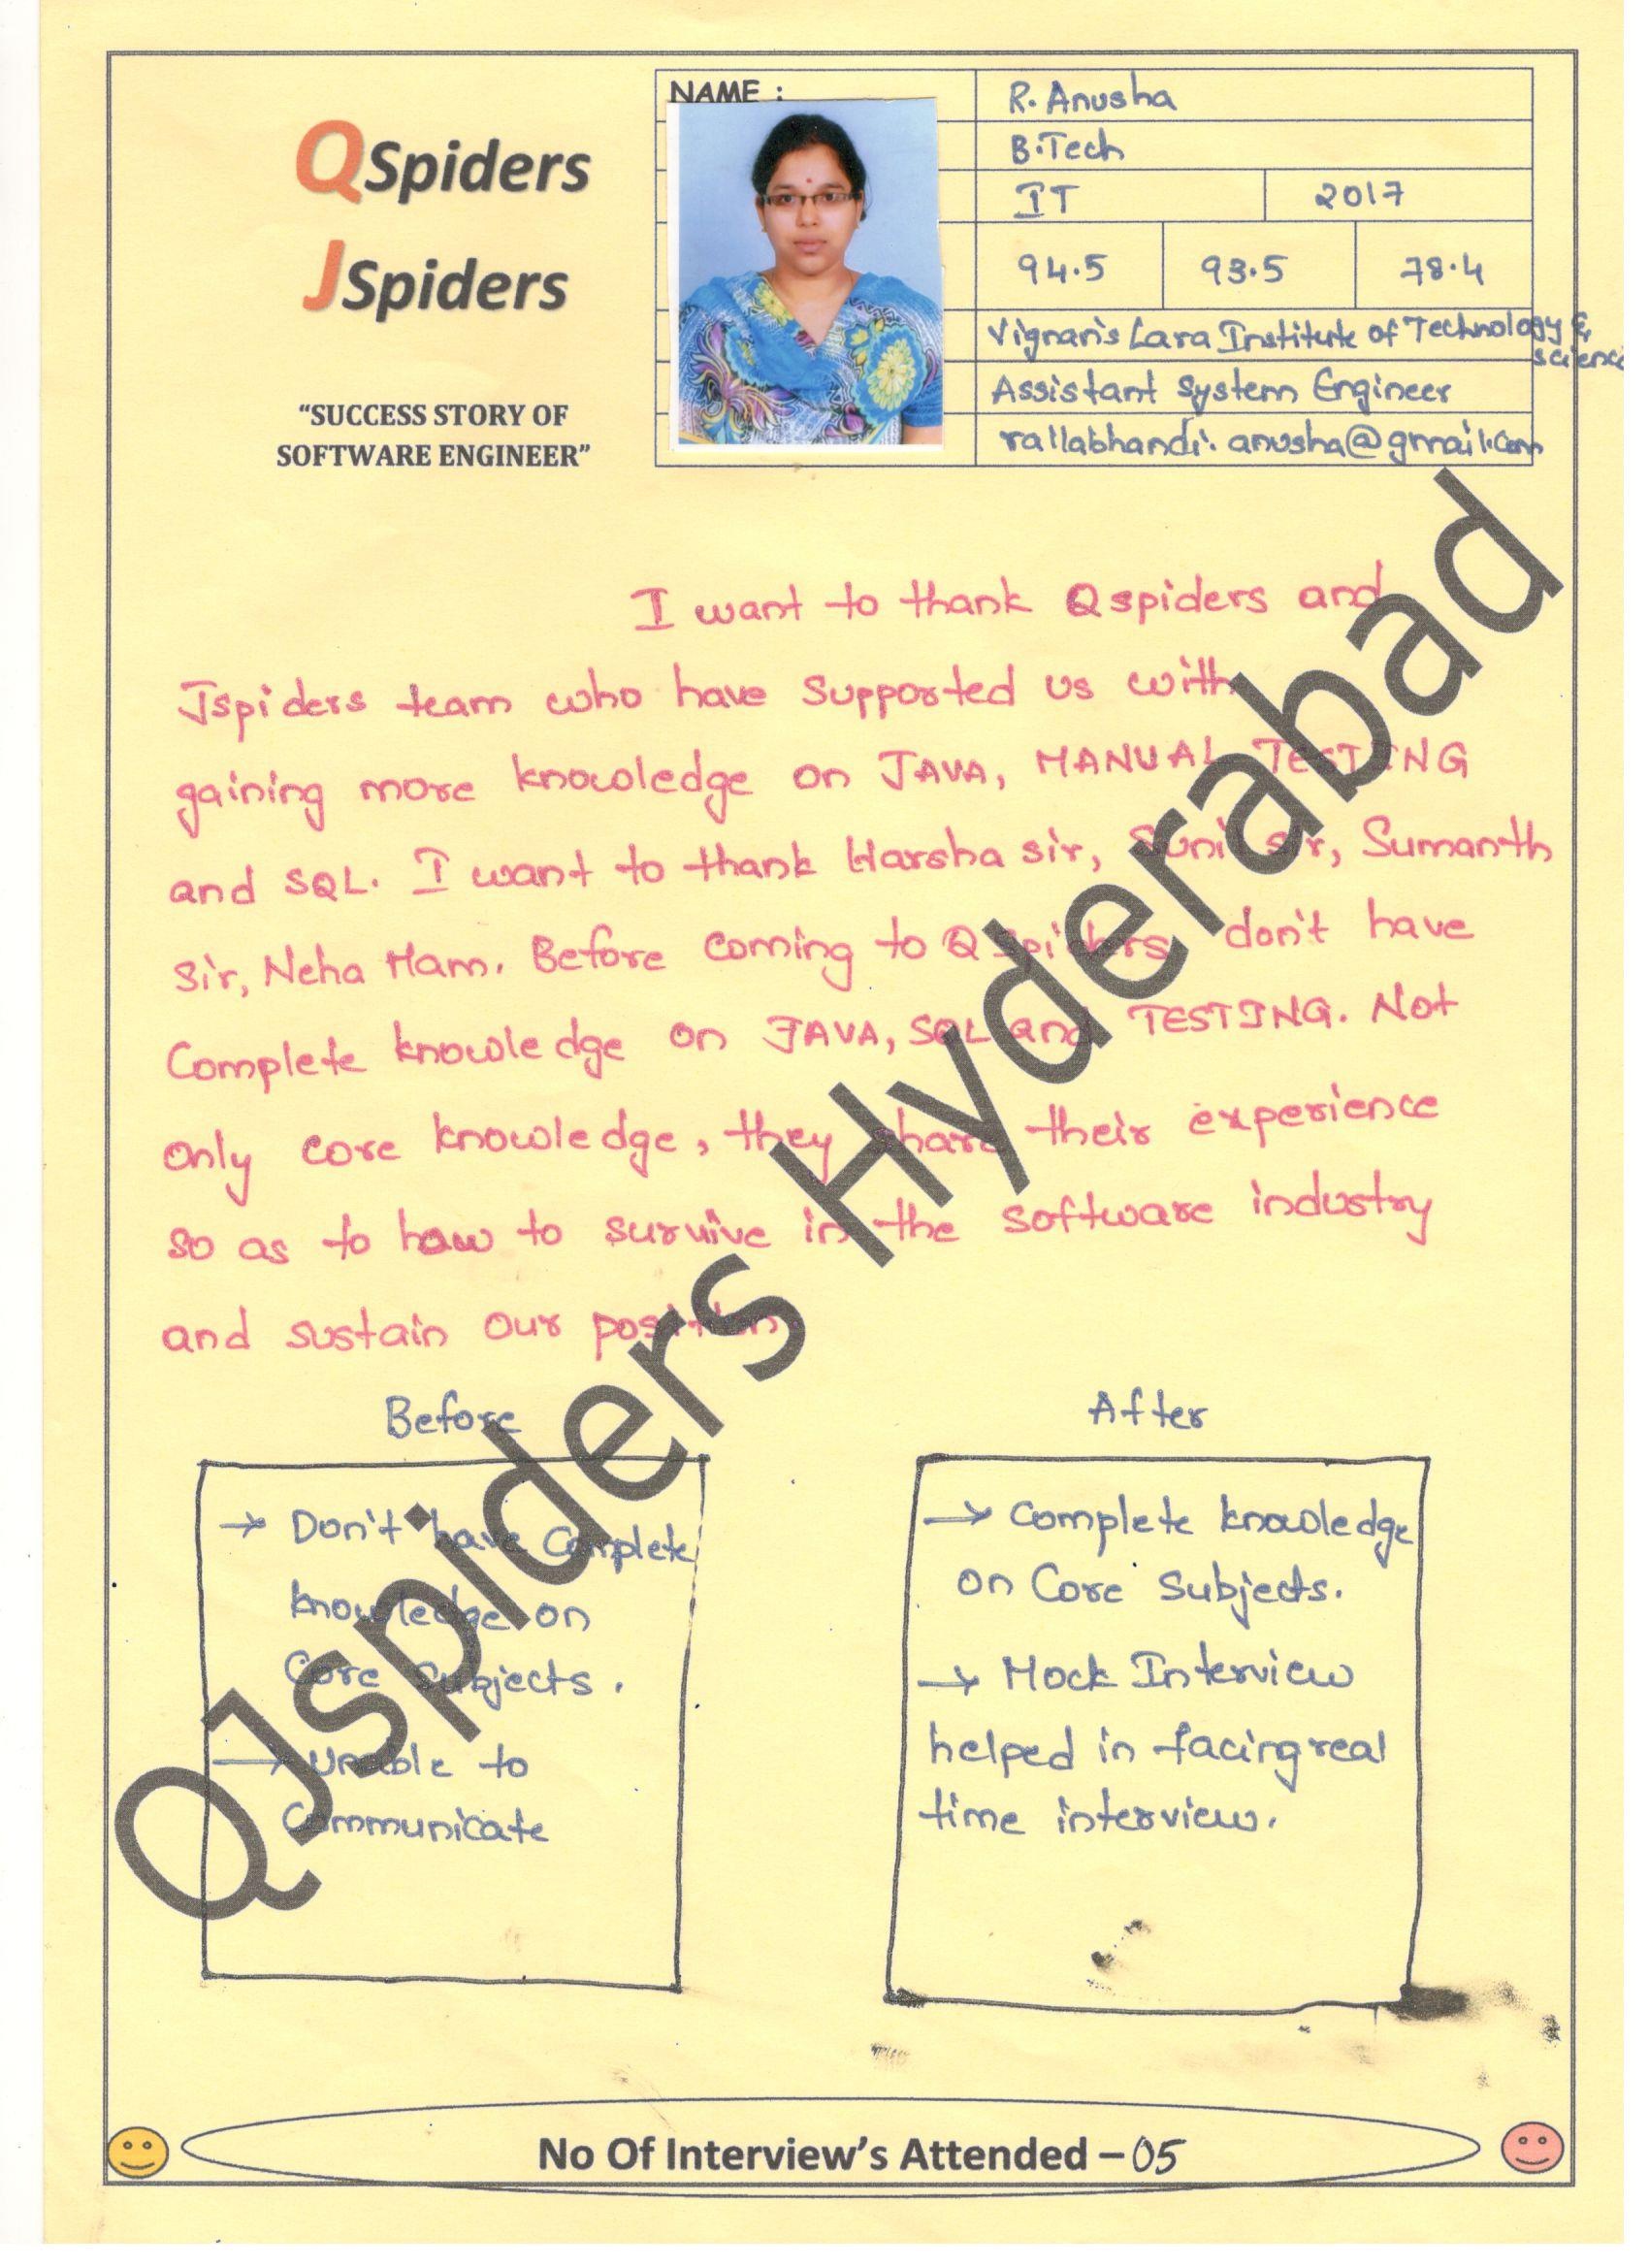 QSpiders
JSpiders
"SUCCESS STORY OF
SOFTWARE ENGINEER"
NAME :
R. Anusha
B.Tech
IT 2017
94.5 93.5 78.4
Vignan's Lara Institute of Technology &
Science
Assistant System Engineer
rallabhandi.anusha@gmail.com
I want to thank Qspiders and
Jspiders team who have supported us with
gaining more knowledge on JAVA, MANUAL TESTING
and SQL. I want to thank Harsha sir, Sunil sir, Sumanth
sir, Neha Mam. Before coming to QSpiders don't have
Complete knowledge on JAVA, SQL and TESTING. Not
only core knowledge, they share their experience
so as to how to survive in the software industry
and sustain our position
Before
→ Don't have Complete
knowledge on
Core Subjects.
→ Unable to
Communicate
After
→ Complete knowledge
on Core Subjects.
→ Mock Interview
helped in facing real
time interview.
QJspiders Hyderabad
No Of Interview's Attended – 05